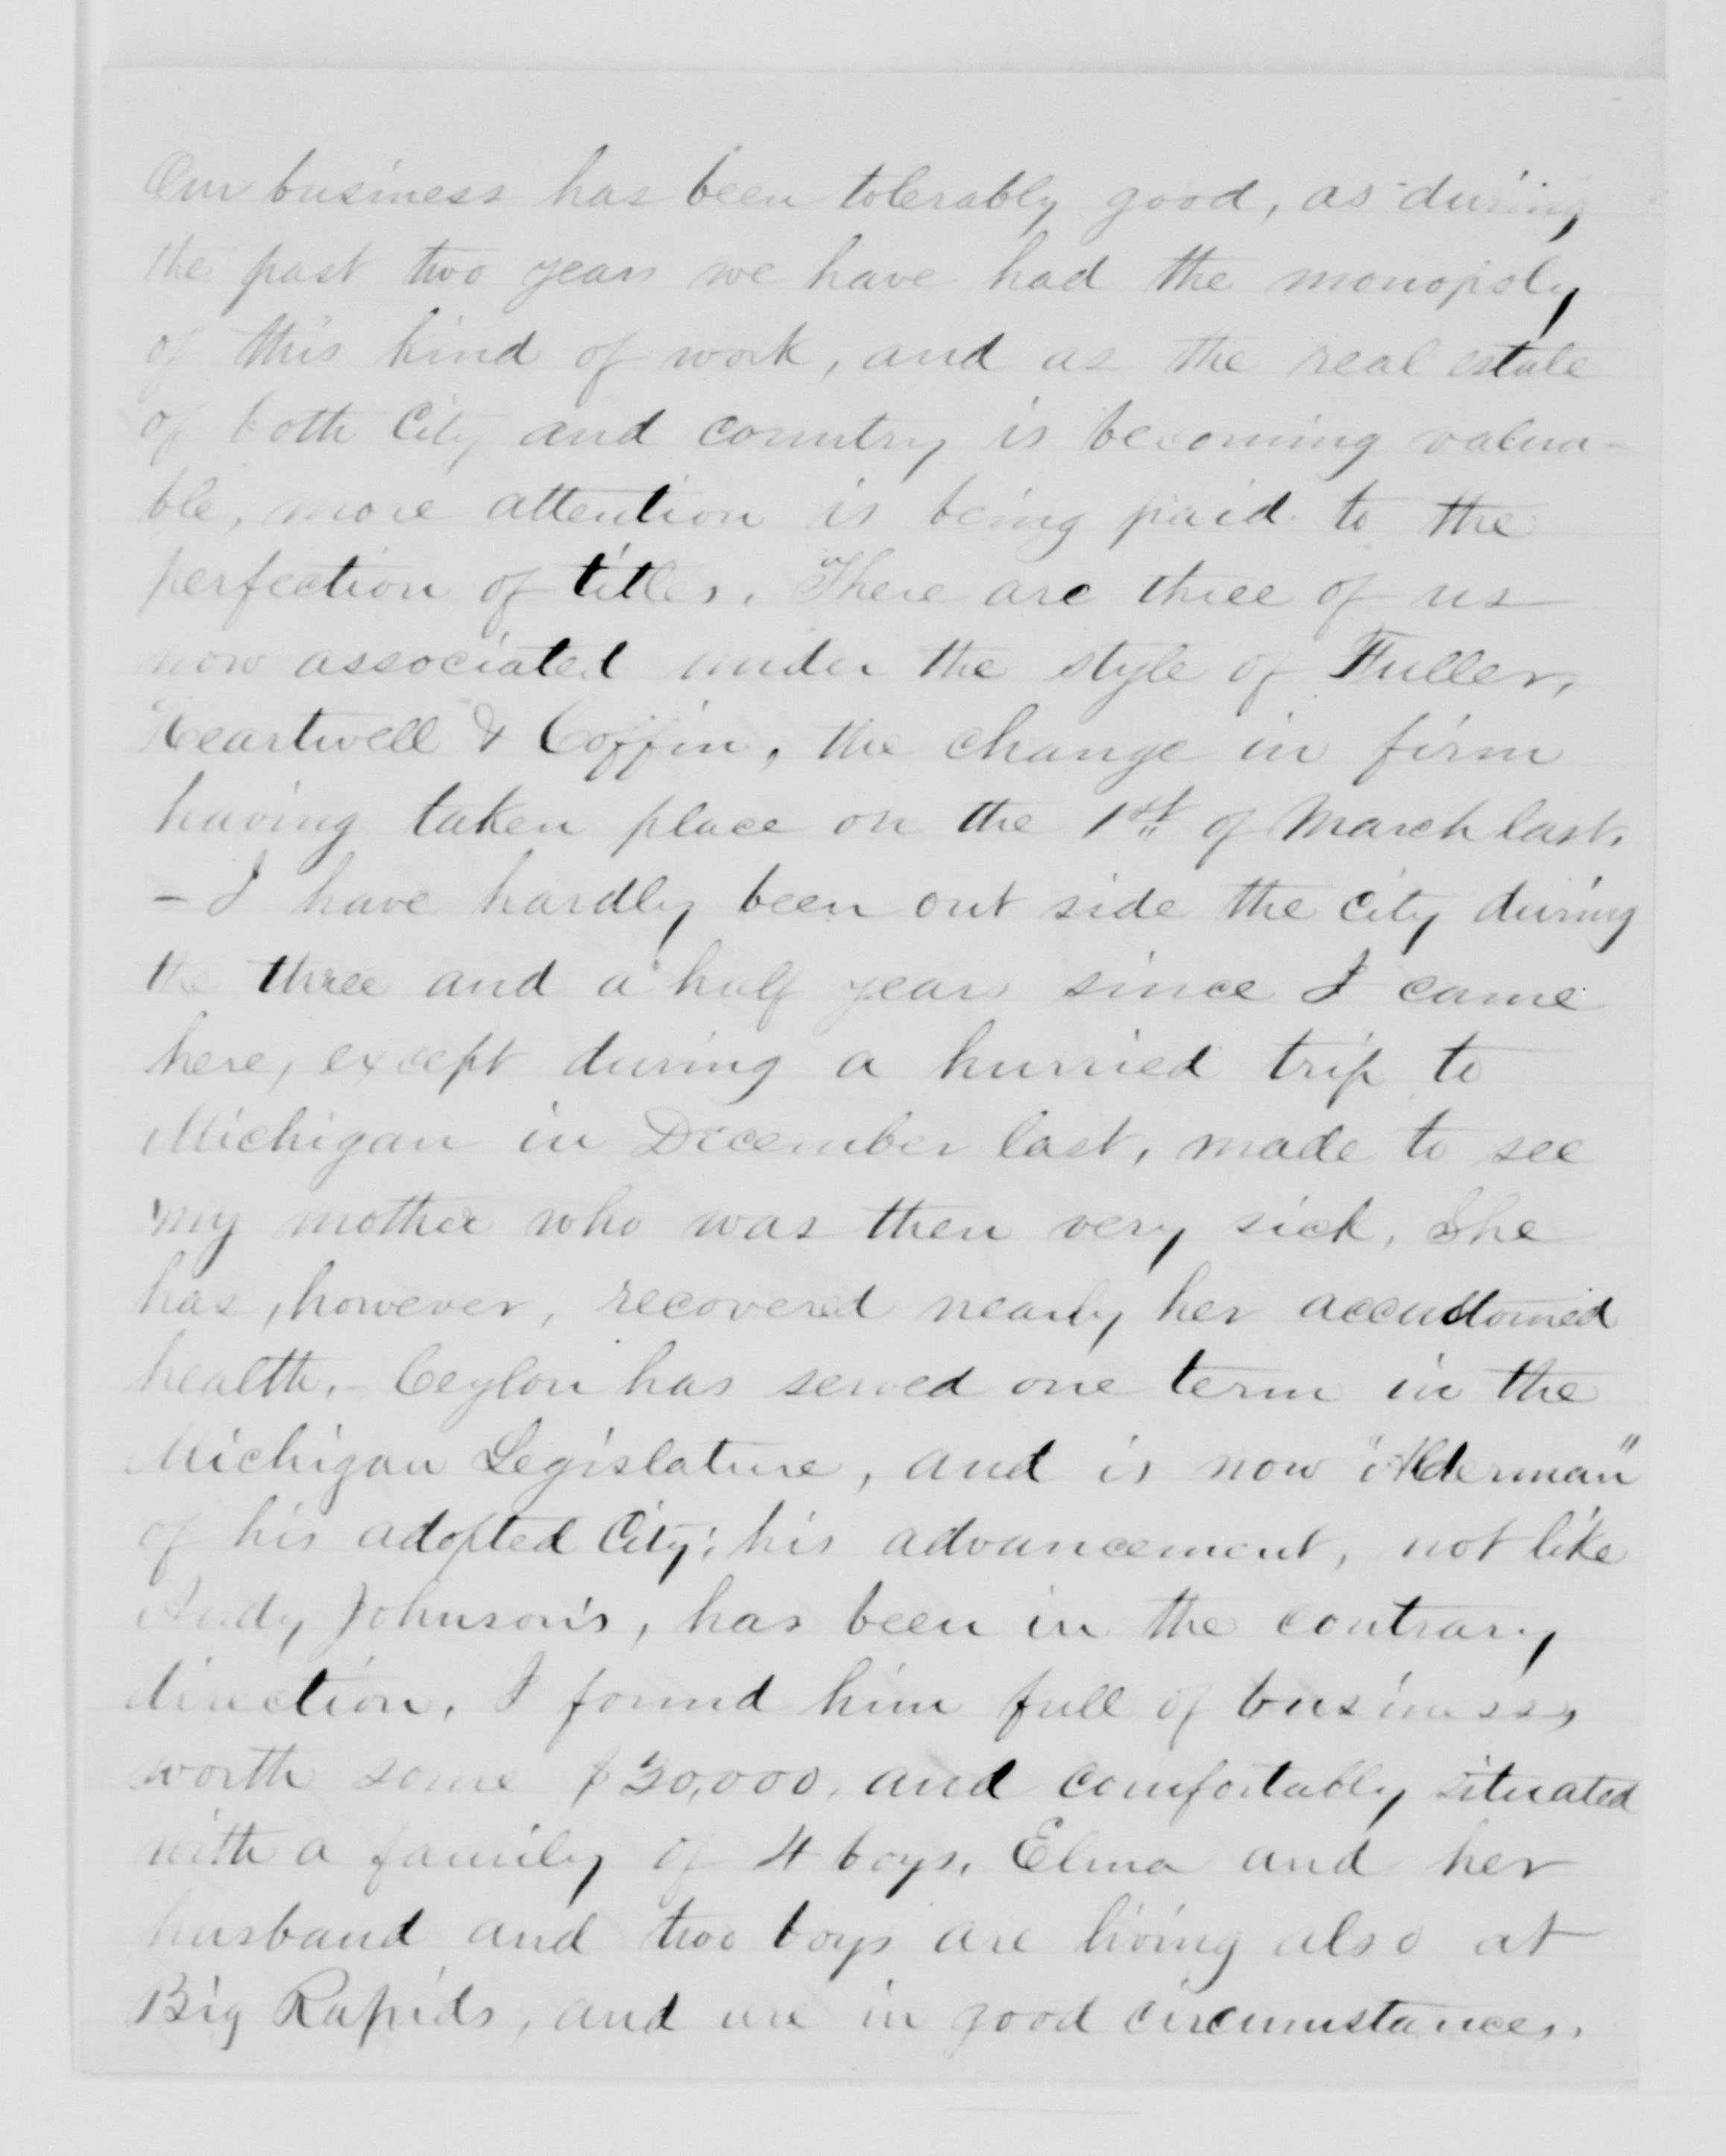 Our business has been tolerably good, as during
the past two years we have had the monopoly
of this kind of work, and as the real estate
of both City and country is becoming valua-
ble, more attention is being paid to the
perfection of titles. There are three of us
now associated under the style of Fuller,
Heartwell & Coffin, the change in firm
having taken place on the 1st of March last.
- I have hardly been out side the City during
the three and a half years since I came
here, except during a hurried trip to
Michigan in December last, made to see
my mother who was then very sick. She
has, however, recovered nearly her accustomed
health. - Ceylon has served one term in the
Michigan Legislature, and is now "Alderman"
of his adopted City; his advancement, not like
Andy Johnson's, has been in the contrary
direction. I found him full of business,
worth some $30,000, and comfortably situated
with a family of 4 boys. Elma and her
husband and two boys are living also at
Big Rapids, and are in good circumstances.